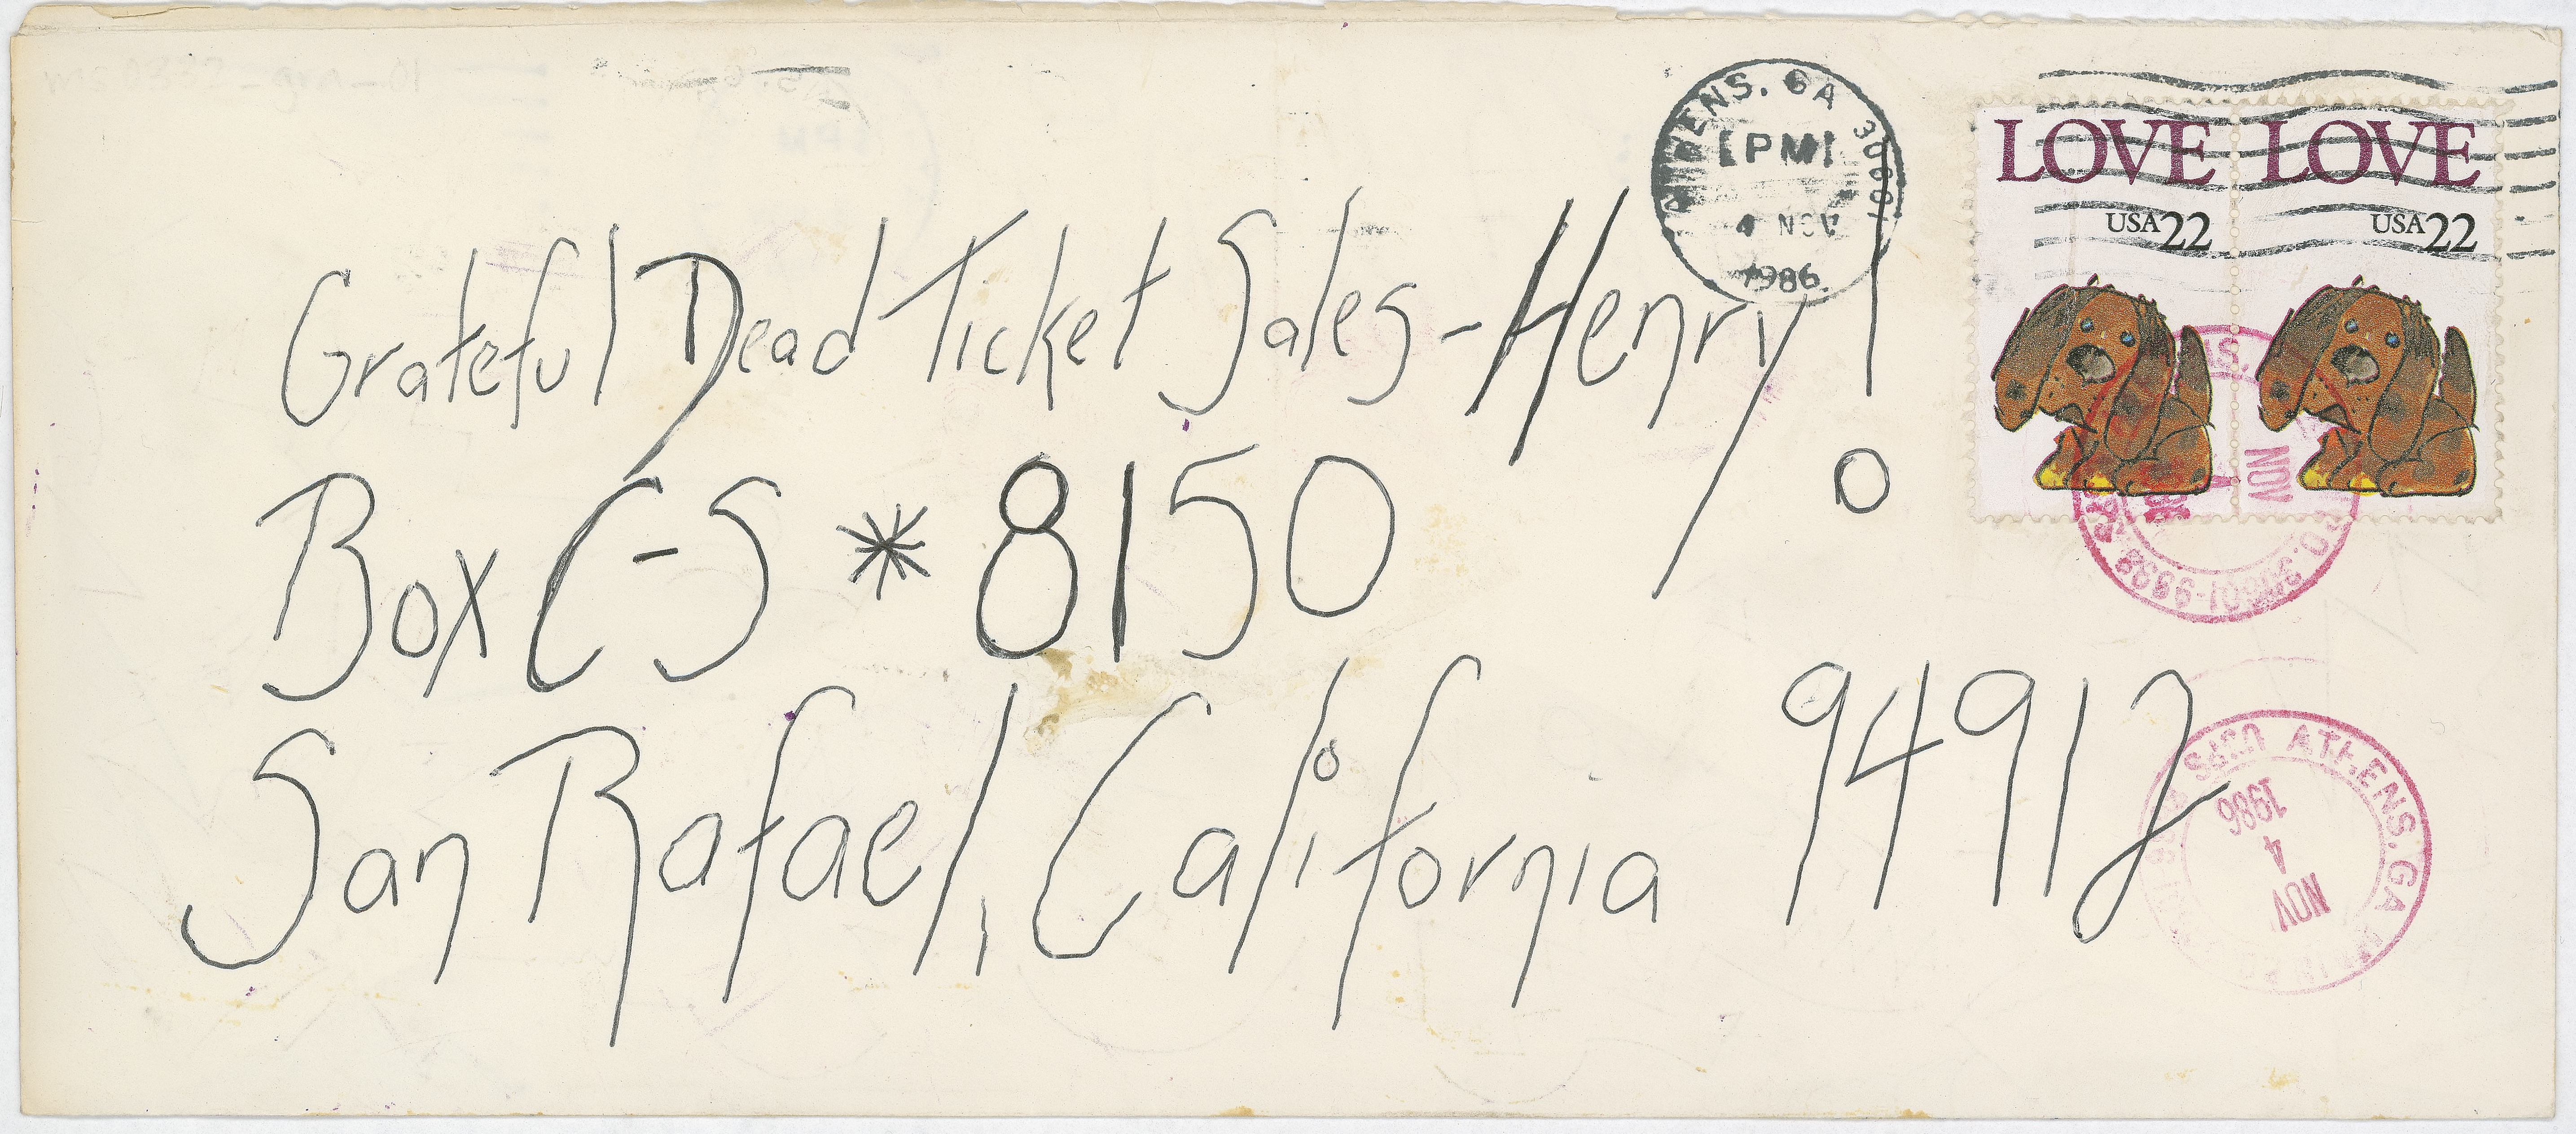 ATHENS. GA 30601
PM
4 NOV
1986
LOVE LOVE
USA22 USA22
Grateful Dead Ticket Sales-Henry!
Box C-S * 8150
San Rafael, California 94912
NOV
USPS ATHENS. GA
NOV
4
1986